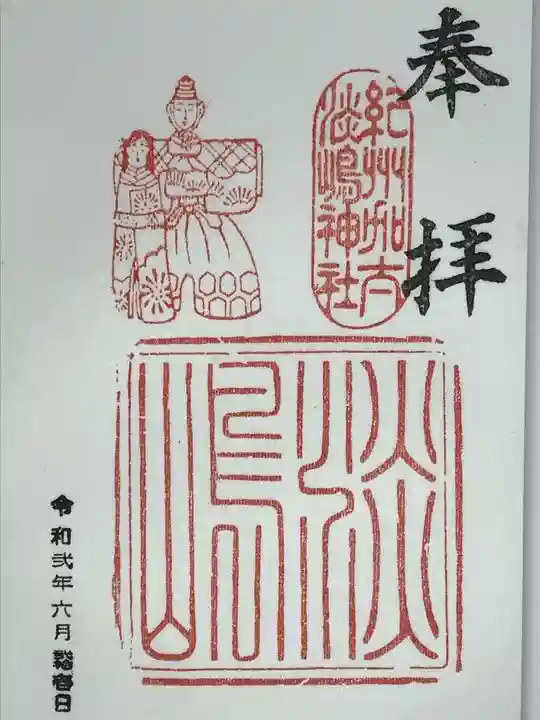 奉拝
紀州加太
淡嶋神社
淡嶋
令和弐年六月